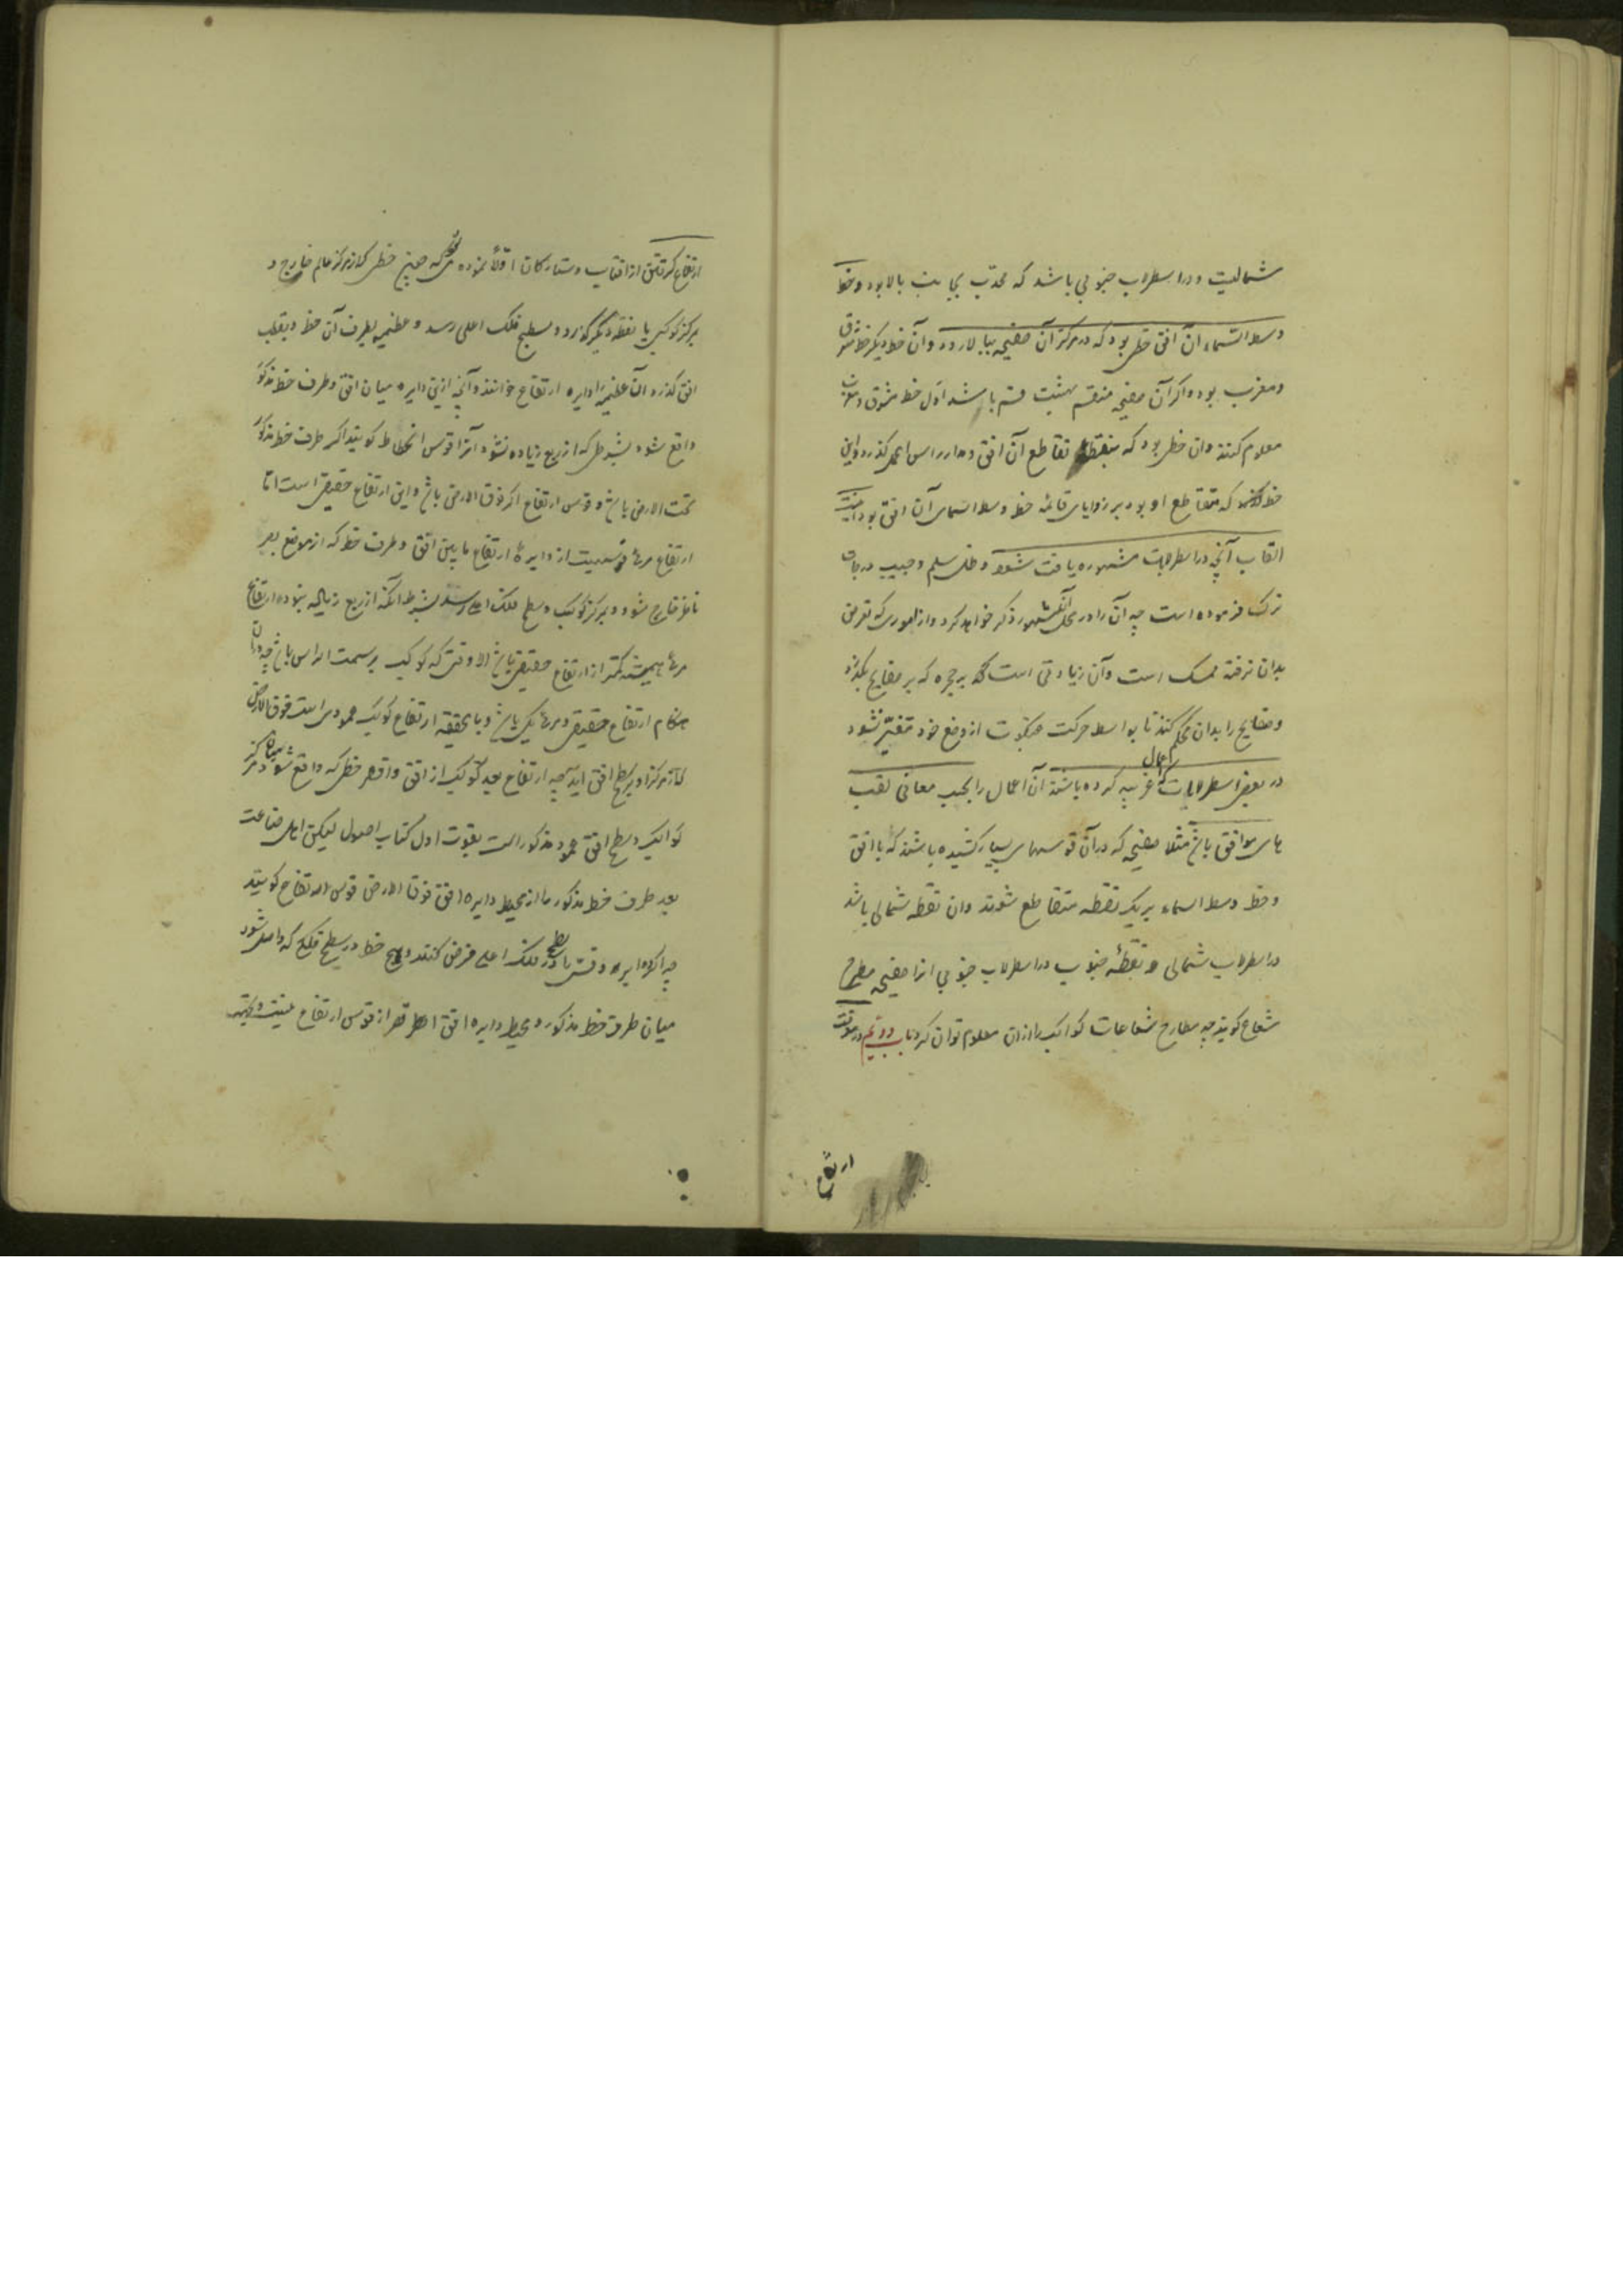 شمالیست و در اسطرلاب جنوبی باشد که محدب بجانب بالا بود و خط
وسط السماء آن افق خطی بود که در مرکز آن صفیحه ببالا رود و آن خط دیگر خط مشرق
و مغرب بود و اگر آن صفیحه منقسم بهشت قسم باشد اول خط مشرق و مغرب
معلوم کنند و ان خطی بود که بنقطه تقاطع آن افق و مدار راس الحمل گذرد و این
خط که متقاطع او بود بر زوایای قائمه خط وسط السمای آن افق بود اینست
القاب آنچه در اسطرلابات مشهوره یافت شود و ظل سلم و جیب درجات
ترک فرموده است چه آن را در محل آنکه مشهور ذکر خواهد کرد و از اموری که تعرض
بدان نرفته ممسک است و آن زیادتی است که بر حجره که بر صفایح بگذرد
و صفایح را بدان محکم کنند تا بواسطه حرکت عنکبوت از وضع خود متغیر نشود
در بعضی اسطرلابات که اعمال غریبه کرده باشند آن اعمال را بحسب معانی لقب
های موافق باشد مثلا صفیحه که در آن قوسهای بسیار کشیده باشند که با افق
و خط وسط السماء بر یک نقطه متقاطع شوند وان نقطه شمالی باشد
در اسطرلاب شمالی و نقطهٔ جنوب در اسطرلاب جنوبی انرا صفیحه مطرح
شعاع گویند چه مطارح شعاعات کواکب را ازان معلوم توان کرد باب دویم در معرفت
ارتفاع
ارتفاع گرفتن از افتاب و ستارکان اولا نموده می که هیچ خطی که از مرکز عالم خارج و
بمرکز کوکبی یا نقطه دیگر گذرد و بسطح فلک اعلی رسد و عظیمه بطرف آن خط و بقطب
افق گذرد آن عظیمه را دایره ارتفاع خوانند و آنچه ازین دایره میان افق و طرف خط مذکور
واقع شود بشرطی که از ربع زیاده نشود آنرا قوس انحطاط گویند اگر طرف خط مذکور
تحت الارض باشد و قوس ارتفاع اگر فوق الارض باشد و این ارتفاع حقیقی است اما
ارتفاع مرئی قوسیست از دایرهٔ ارتفاع مابین افق و طرف خط که از موضع بصر
ناظر خارج شود و بمرکز کوکب و سطح فلک اعلی رسد بشرط آنکه از ربع زیاده نبود و ارتفاع
مرئی همیشه کمتر از ارتفاع حقیقی باشد الا وقتی که کوکب بر سمت الراس باشد چه دران
هنکام ارتفاع حقیقی و مرئی یکی باشد و بالحقیقه ارتفاع کوکب عمودی است فوق الارض
که از مرکز او بر سطح افق آید چه ارتفاع بعد کوکب از افق و اقصر خطی که واقع شود میان مرکز
کواکب و سطح افق عمود مذکور است بقوت اول کتاب اصول لیکن اهل صناعت
بعد طرف خط مذکور را از محیط دایره افق فوق الارض قوس ارتفاع گویند
چه اگر دایره افق را در سطح فلک اعلی فرض کنند هیچ خط در سطح فلک که واصل شود
میان طرف خط مذکور و محیط دایره افق اقصر از قوس ارتفاع نیست و